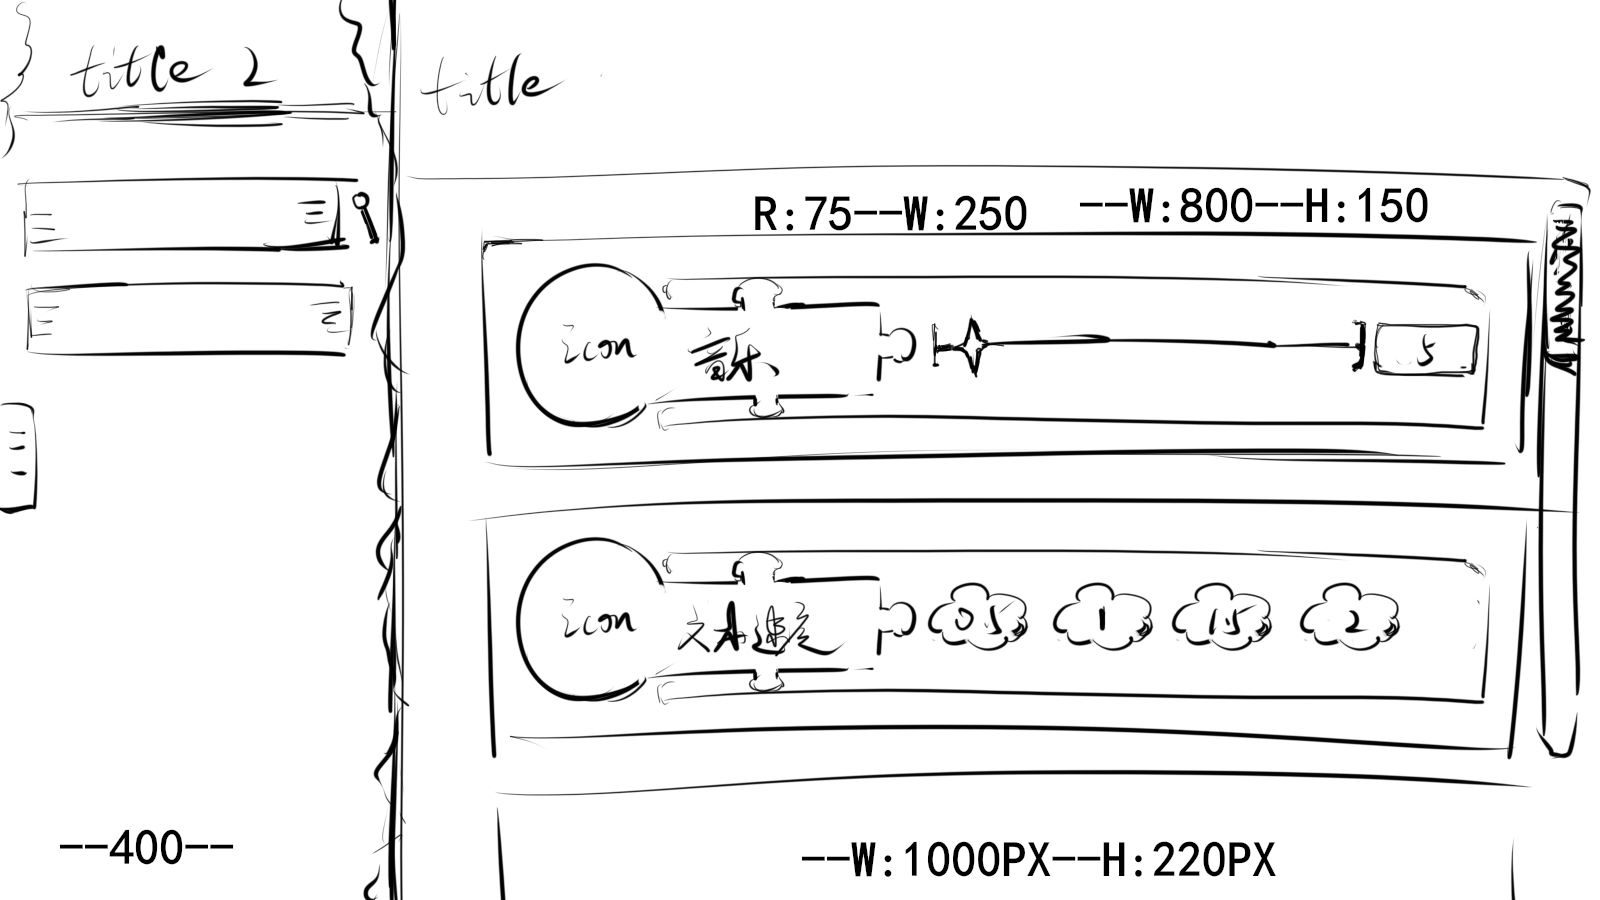 title 2
title
R:75--W:250
--W:800--H:150
icon
音乐
5
icon
文本速度
0.5
1
1.5
2
--400--
--W:1000PX--H:220PX